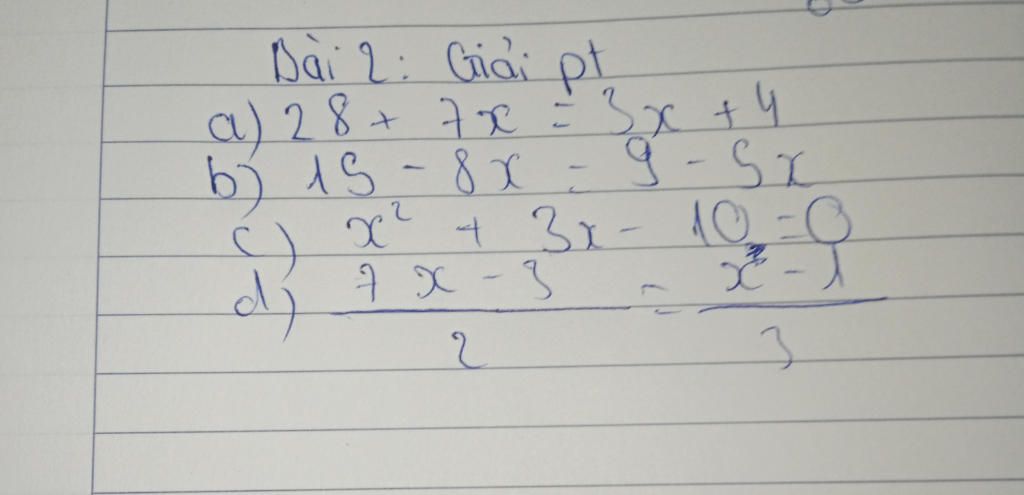 Bài 2: Giải pt
a) 28 + 7x = 3x + 4
b) 15 - 8x = 9 - 5x
c) x² + 3x - 10 = 0
d) (7x - 3)/2 = (x - 1)/3